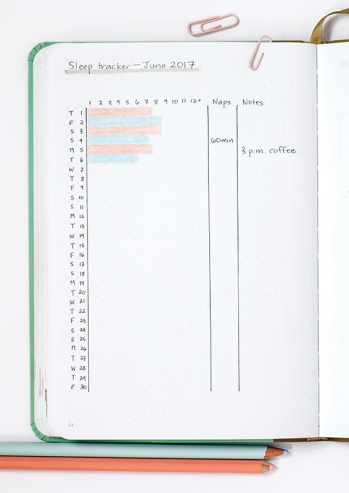 Sleep tracker — June 2017
1 2 3 4 5 6 7 8 9 10 11 12+ Naps Notes
T 1
F 2
S 3
S 4 60min
M 5 3 p.m. coffee
T 6
W 7
T 8
F 9
S 10
S 11
M 12
T 13
W 14
T 15
F 16
S 17
S 18
M 19
T 20
W 21
T 22
F 23
S 24
S 25
M 26
T 27
W 28
T 29
F 30